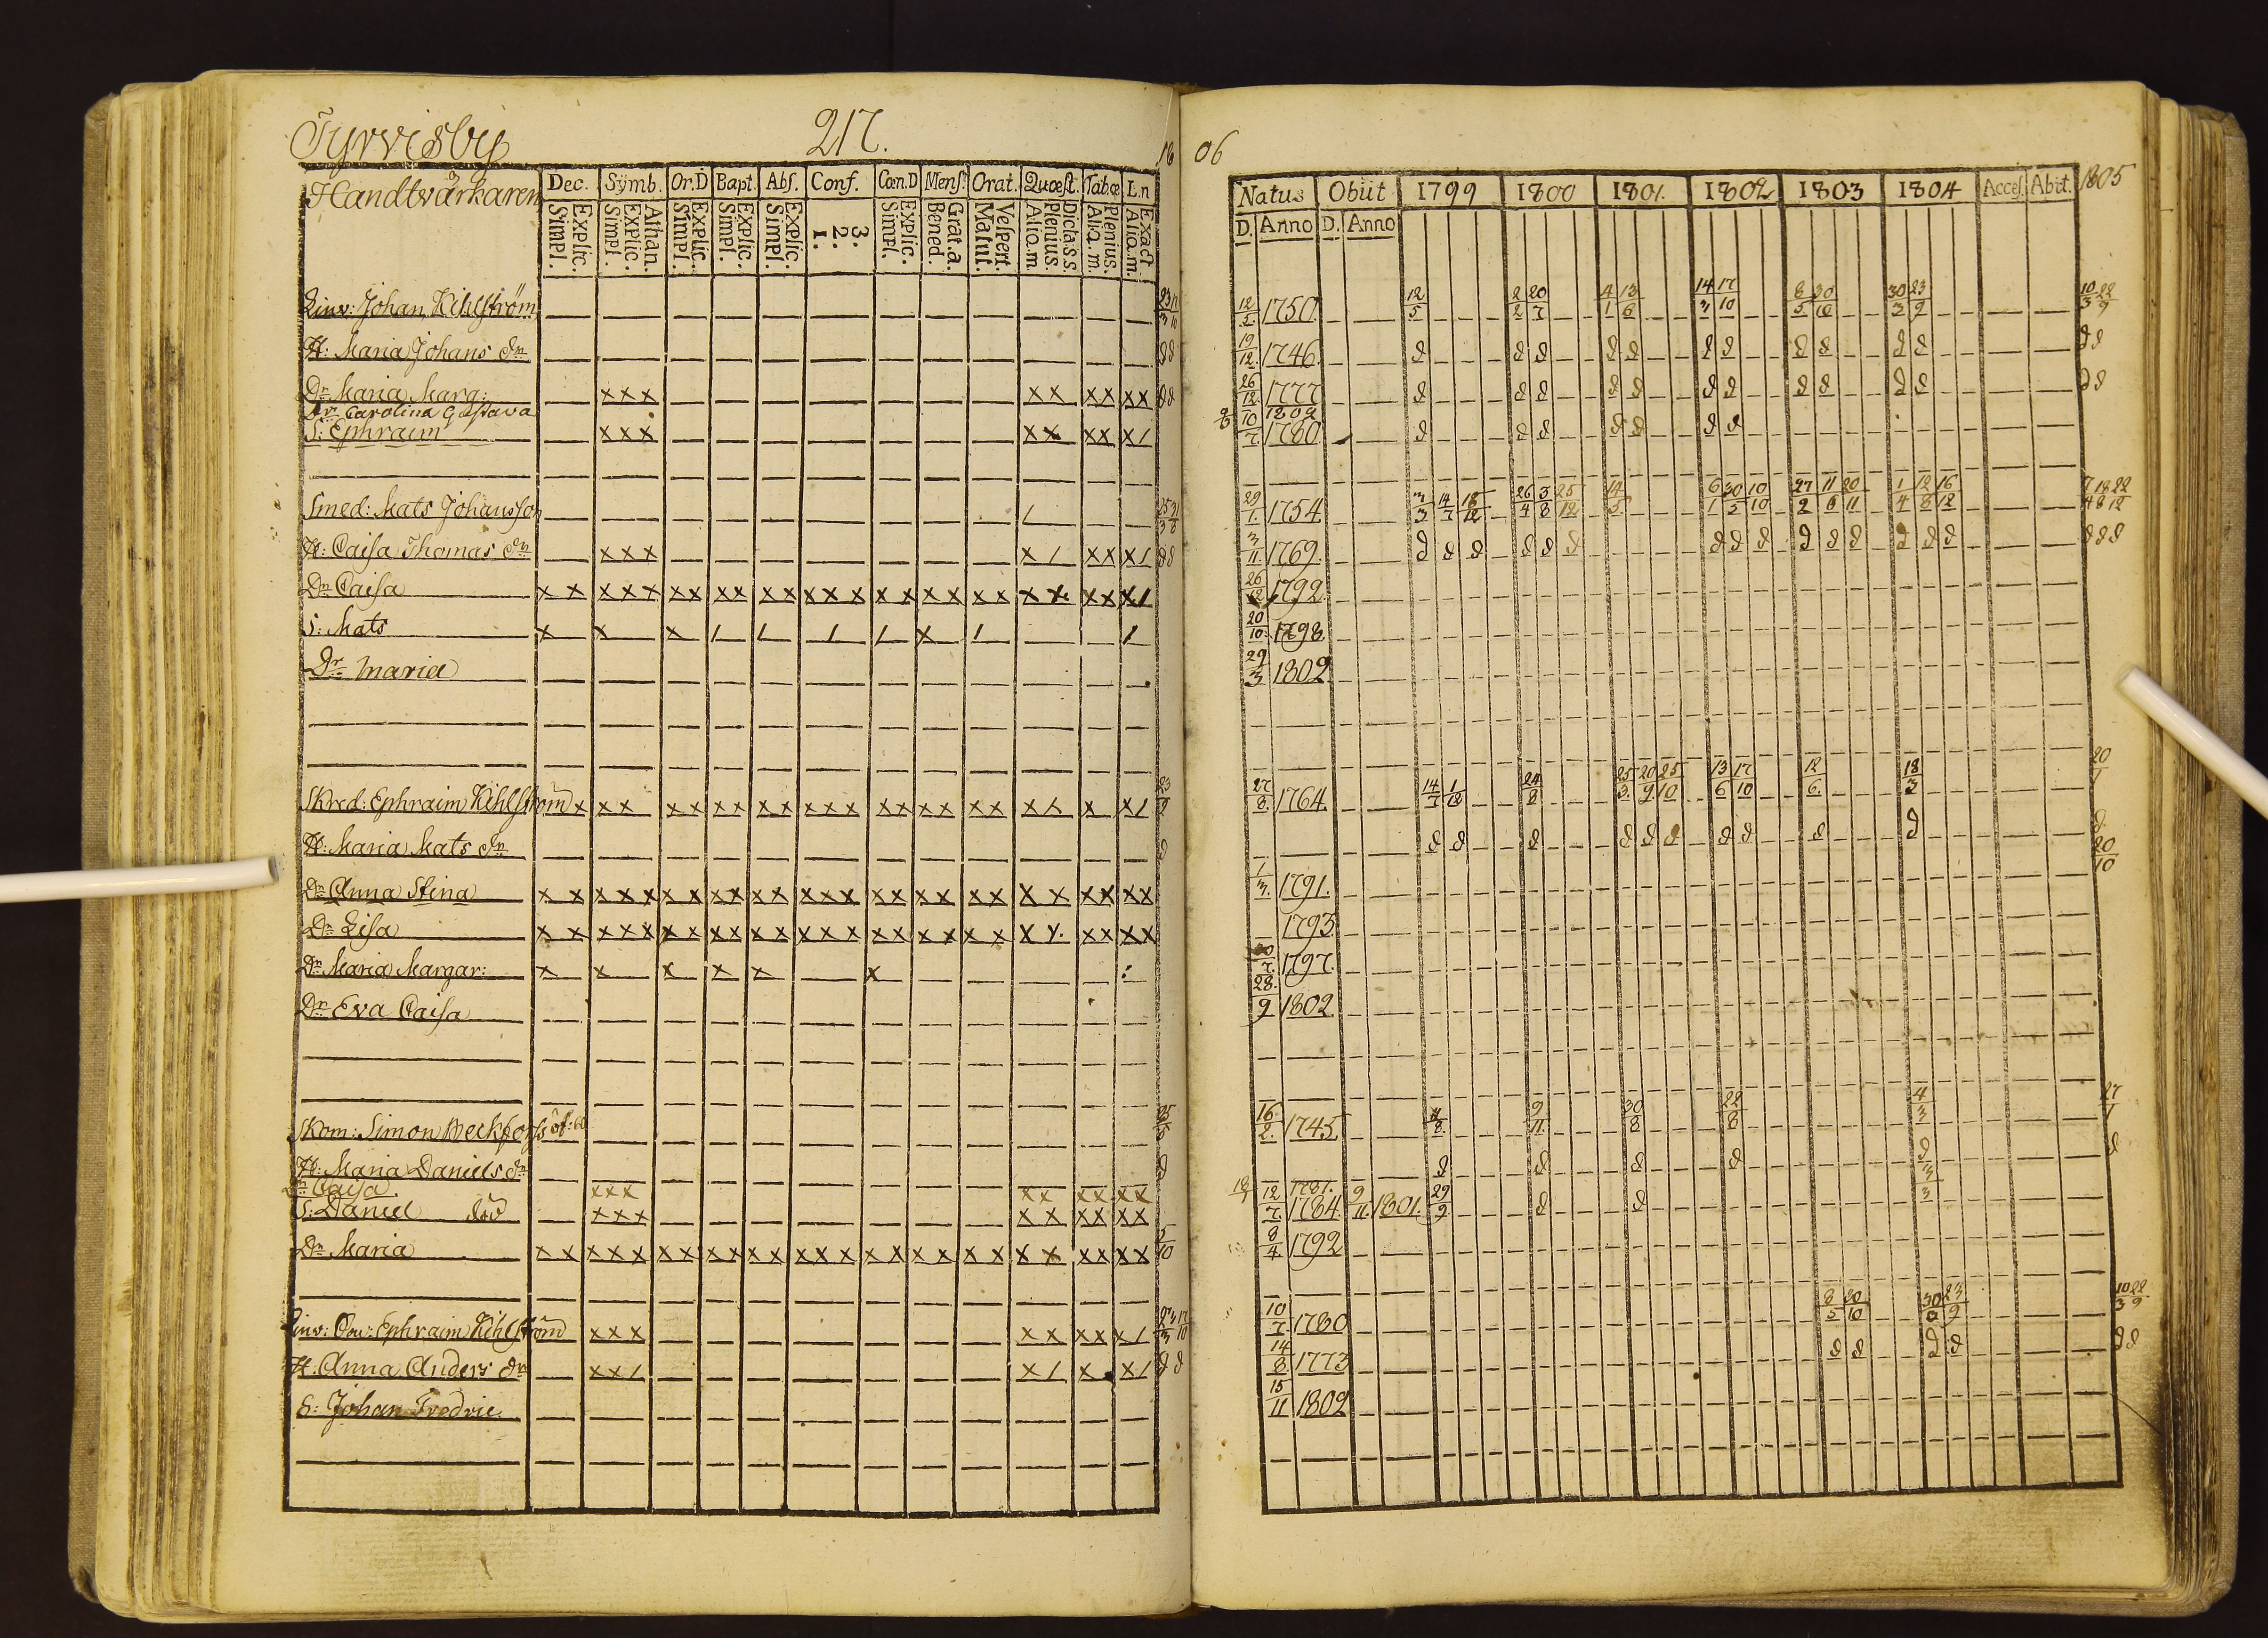 Tyrvisby
217.
Handtvärkaren
Dec. Symb. Or.D Bapt. Abs. Conf. Cœn.D Mens. Orat. Quœst. Tab.œ L.n
Explic. Simpl. Athan. Explic. Simpl. Explic. Simpl. Explic. Simpl. Explic. Simpl. 3. 2. 1. Explic. Simpl. Grat.a. Bened. Vespert. Matut. Dicta.s.s. Plenius. Aliq.m Plenius. Aliq.m Exact Aliq.m.
Linv: Johan Kihlström
H: Maria Johans dr
Dr Maria Marg: xxx xx xx xx
Dr Carolina Gustava
S: Ephraim xxx xx xx x/
Smed: Mats Johansson /
H: Caisa Thomas dr xxx x/ xx x/
Dr Caisa x x xxx xx xx xx xxx xx xx xx xx xx x/
S: Mats x x x / / / / x / /
Dr Maria
Skred: Ephraim Kihlström x xx xx xx xx xxx xx xx xx x/ x x/
H: Maria Mats dr
Dr Anna Stina x x xxx xx xx xx xxx xx xx xx xx xx xx
Dr Lisa x x xxx xx xx xx xxx xx xx xx xx xx
Dr Maria Margar: x x x x x x
Dr Eva Caisa
Skom: Simon
H: Maria Daniels dr
Dr Caisa xxx xx xx xx
S: Daniel död xxx xx xx xx
Dr Maria x x xxx xx xx xx xxx xx xx xx xx xx xx
Linv: Ephraim Kihlström xxx xx xx x/
H: Anna Anders dr xx/ x/ x x/
S: Johan Fredric
18 06
Natus Obiit 1799 1800 1801. 1802 1803 1804 Acces. Abit. 1805
D. Anno D. Anno
12/5 1750 12/5 2/2 20/7 4/1 13/6 14/3 17/10 8/5 30/10 30/3 23/9 10/3 22/9
19/12 1746 d d d d d d d d d d d d d
26/12 1777 d d d d d d d d d d d d d
10 1802
10/7 1780 d d d d d d d
29/1 1754 3/3 14/7 26/4 3/8 25/12 14/5 6/1 30/5 10/10 27/2 11/6 20/11 1/4 12/8 16/12 7/4 18/8 22/12
3/11 1769 d d d d d d d d d d d d d d d d d d
26/12 1792
20/10 1798
29/3 1802
27/8 1764 14/7 1/12 24/8 25/3 20/9 25/10 13/6 17/10 12/6 18/3 20/1
d d d d d d d d d d d
1/3 1791. 20/10
1793
20/7 1797.
28/9 1802
16/2 1745 9/11 30/8 22/8 4/3 27/1
d d d d d d
12 1781. 3/3
7 1784 9/11 1801. 29/9 d d
8/4 1792
10/7 1780 8/5 20/10 30/3 23/9 10/3 22/9
14/8 1773 d d d d d d
15/11 1802